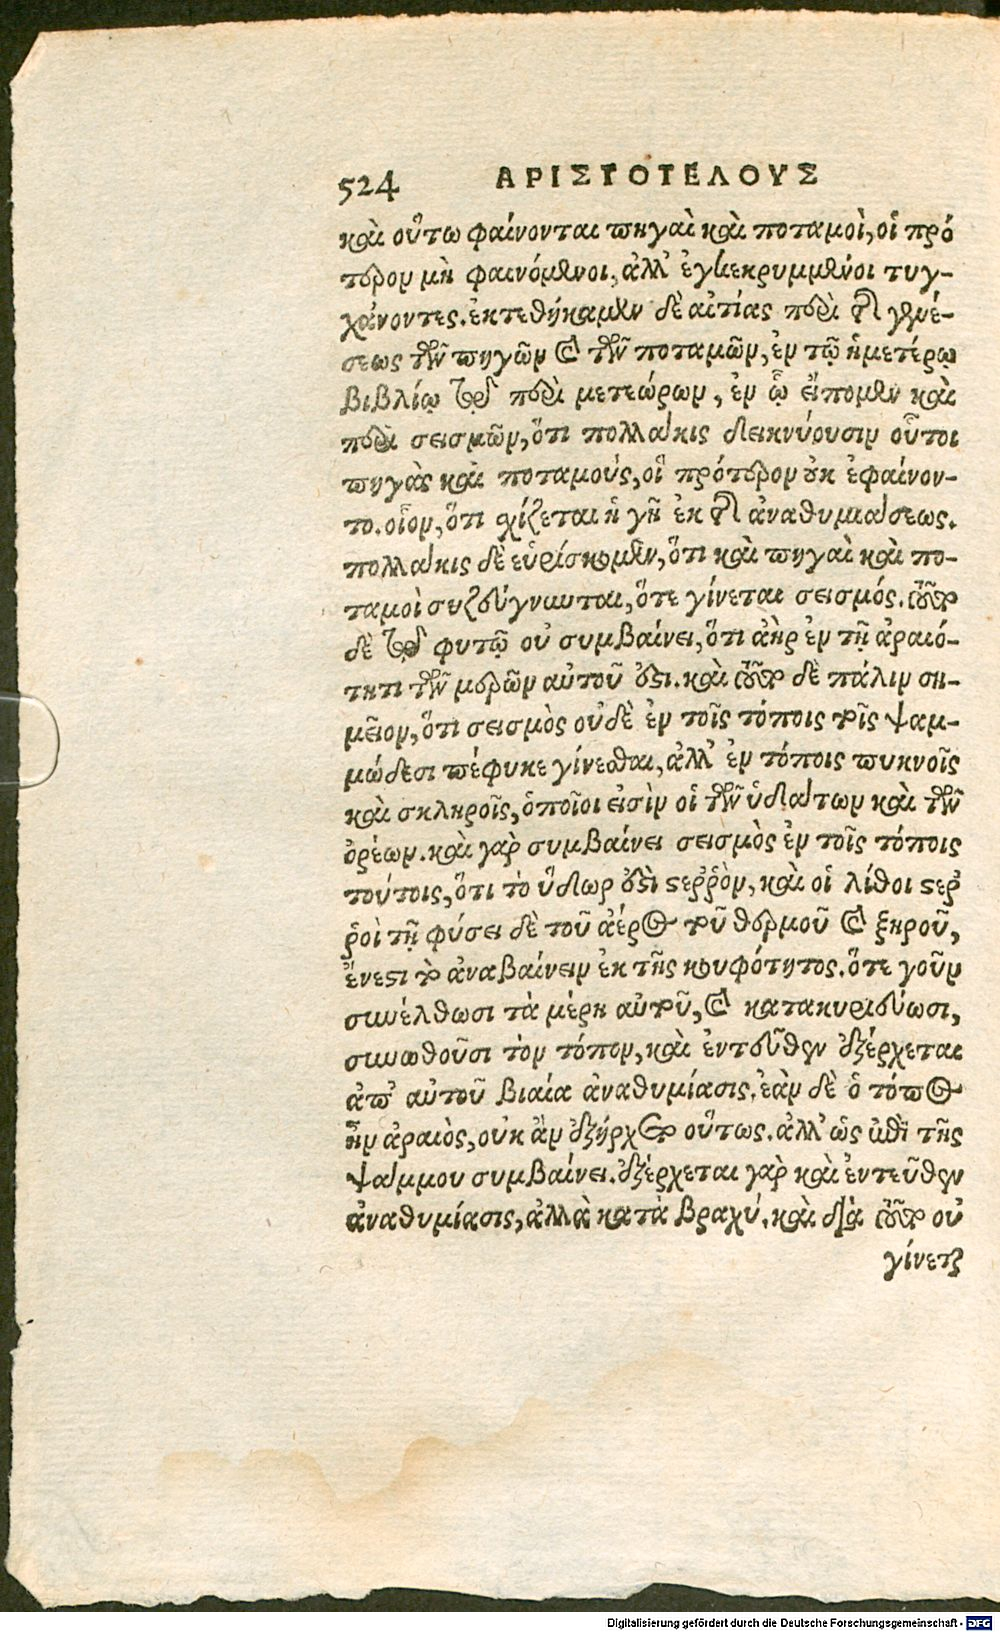 524 ΑΡΙΣΤΟΤΕΛΟΥΣ
καὶ οὕτω φαίνονται πηγαὶ καὶ ποταμοὶ, οἱ πρό
τερον μὴ φαινόμενοι, ἀλλ' ἐγκεκρυμμένοι τυγ-
χάνοντες. ἐκτεθήκαμεν δὲ αἰτίας περὶ τῆς γενέ-
σεως τῶν πηγῶν καὶ τῶν ποταμῶν, ἐν τῷ ἡμετέρῳ
βιβλίῳ τῷ περὶ μετεώρων, ἐν ᾧ εἴπομεν καὶ
περὶ σεισμῶν, ὅτι πολλάκις δεικνύουσιν οὗτοι
πηγὰς καὶ ποταμούς, οἳ πρότερον οὐκ ἐφαίνον-
το. οἷον, ὅτι σχίζεται ἡ γῆ ἐκ τῆς ἀναθυμιάσεως.
πολλάκις δὲ εὑρίσκομεν, ὅτι καὶ πηγαὶ καὶ πο-
ταμοὶ συζεύγνυνται, ὅτε γίνεται σεισμός. τοῦτο
δὲ τῷ φυτῷ οὐ συμβαίνει, ὅτι ἀὴρ ἐν τῇ ἀραιό-
τητι τῶν μερῶν αὐτοῦ ἐστι. καὶ τοῦτο δὲ πάλιν ση-
μεῖον, ὅτι σεισμὸς οὐδὲ ἐν τοῖς τόποις τοῖς ψαμ-
μώδεσι πέφυκε γίνεσθαι, ἀλλ' ἐν τόποις πυκνοῖς
καὶ σκληροῖς, ὁποῖοι εἰσὶν οἱ τῶν ὑδάτων καὶ τῶν
ὀρέων. καὶ γὰρ συμβαίνει σεισμὸς ἐν τοῖς τόποις
τούτοις, ὅτι τὸ ὕδωρ ἐστὶ στερρὸν, καὶ οἱ λίθοι στερ
ροὶ τῇ φύσει δὲ τοῦ ἀέρος τοῦ θερμοῦ καὶ ξηροῦ,
ἔνεστι τὸ ἀναβαίνειν ἐκ τῆς κουφότητος. ὅτε γοῦν
συνέλθωσι τὰ μέρη αὐτοῦ, καὶ κατακυριεύωσι,
συνωθοῦσι τὸν τόπον, καὶ ἐντεῦθεν ἐξέρχεται
ἀπ' αὐτοῦ βιαία ἀναθυμίασις. ἐὰν δὲ ὁ τόπος
ἦν ἀραιὸς, οὐκ ἂν ἐξήρχετο οὕτως. ἀλλ' ὡς ἐπὶ τῆς
ψάμμου συμβαίνει. ἐξέρχεται γὰρ καὶ ἐντεῦθεν
ἀναθυμίασις, ἀλλὰ κατὰ βραχύ. καὶ διὰ τοῦτο οὐ
γίνεται
Digitalisierung gefördert durch die Deutsche Forschungsgemeinschaft - DFG